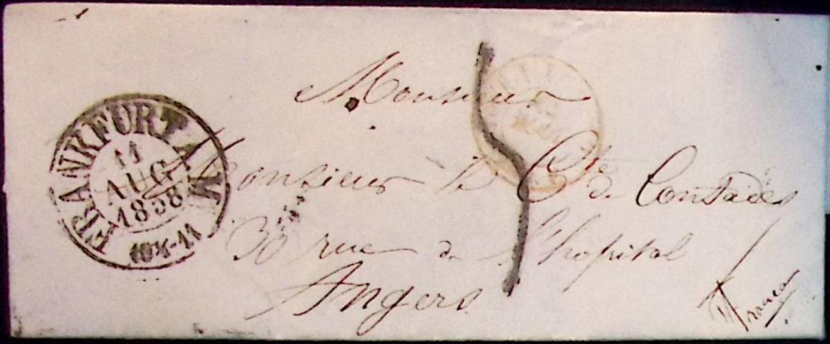 FRANKFURT A. M.
11
AUG
1858
10½-11
Monsieur
Monsieur le Cte de Contades
30 rue de l'hopital
Angers
France